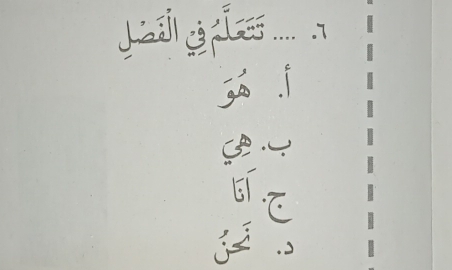 ٦. .... تَتَعَلَّمُ فِي الْفَصْلِ
أ. هُوَ
ب. هِيَ
ج. اَنَا
د. نَحْنُ